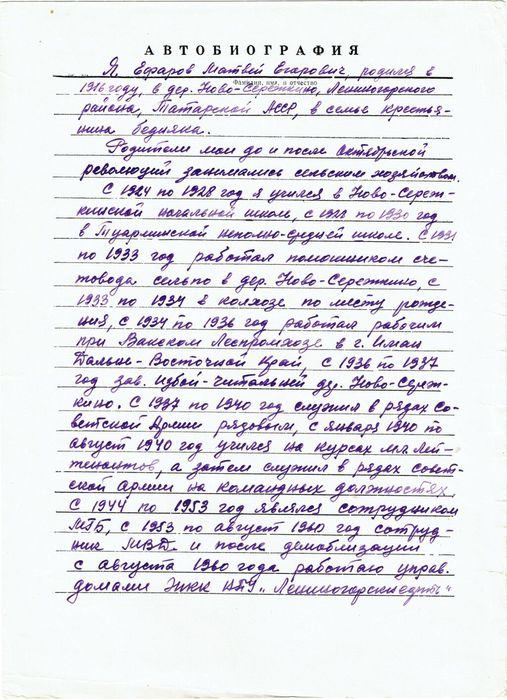 АВТОБИОГРАФИЯ
Фамилия, имя, отчество
Я Ефаров Матвей Егорович, родился в
1916 году, в дер. Ново-Сережкино, Лениногорского
района, Татарской АССР, в семье крестья-
нина бедняка.
Родители мои до и после Октябрьской
революций занимались сельским хозяйством.
С 1924 по 1928 год я учился в Ново-Сереж-
кинской начальной школе, с 1928 по 1930 год
в Туарминской неполно-средней школе. С 1931
по 1933 год работал помошником сче-
товода сельпо в дер. Ново-Сережкино, с
1933 по 1934 в колхозе по месту рожде-
ния, с 1934 по 1936 год работал рабочим
при Вакском Леспромхозе в г. Иман
Дальне-Восточной край, с 1936 по 1937
год зав. избой-читальней дер. Ново-Сереж-
кино. С 1937 по 1940 год служил в рядах Со-
ветской Армии рядовым, с января 1940 по
август 1940 год учился на курсах мл. лей-
тенантов, а затем служил в рядах совет-
ской армии на командных должностях,
С 1944 по 1953 год являлся сотрудником
МГБ, с 1953 по август 1960 год сотруд-
ник МВД. и после демоблизации
с августа 1960 года работаю управ.
домами ЖКК НПУ „Лениногорскнефть"